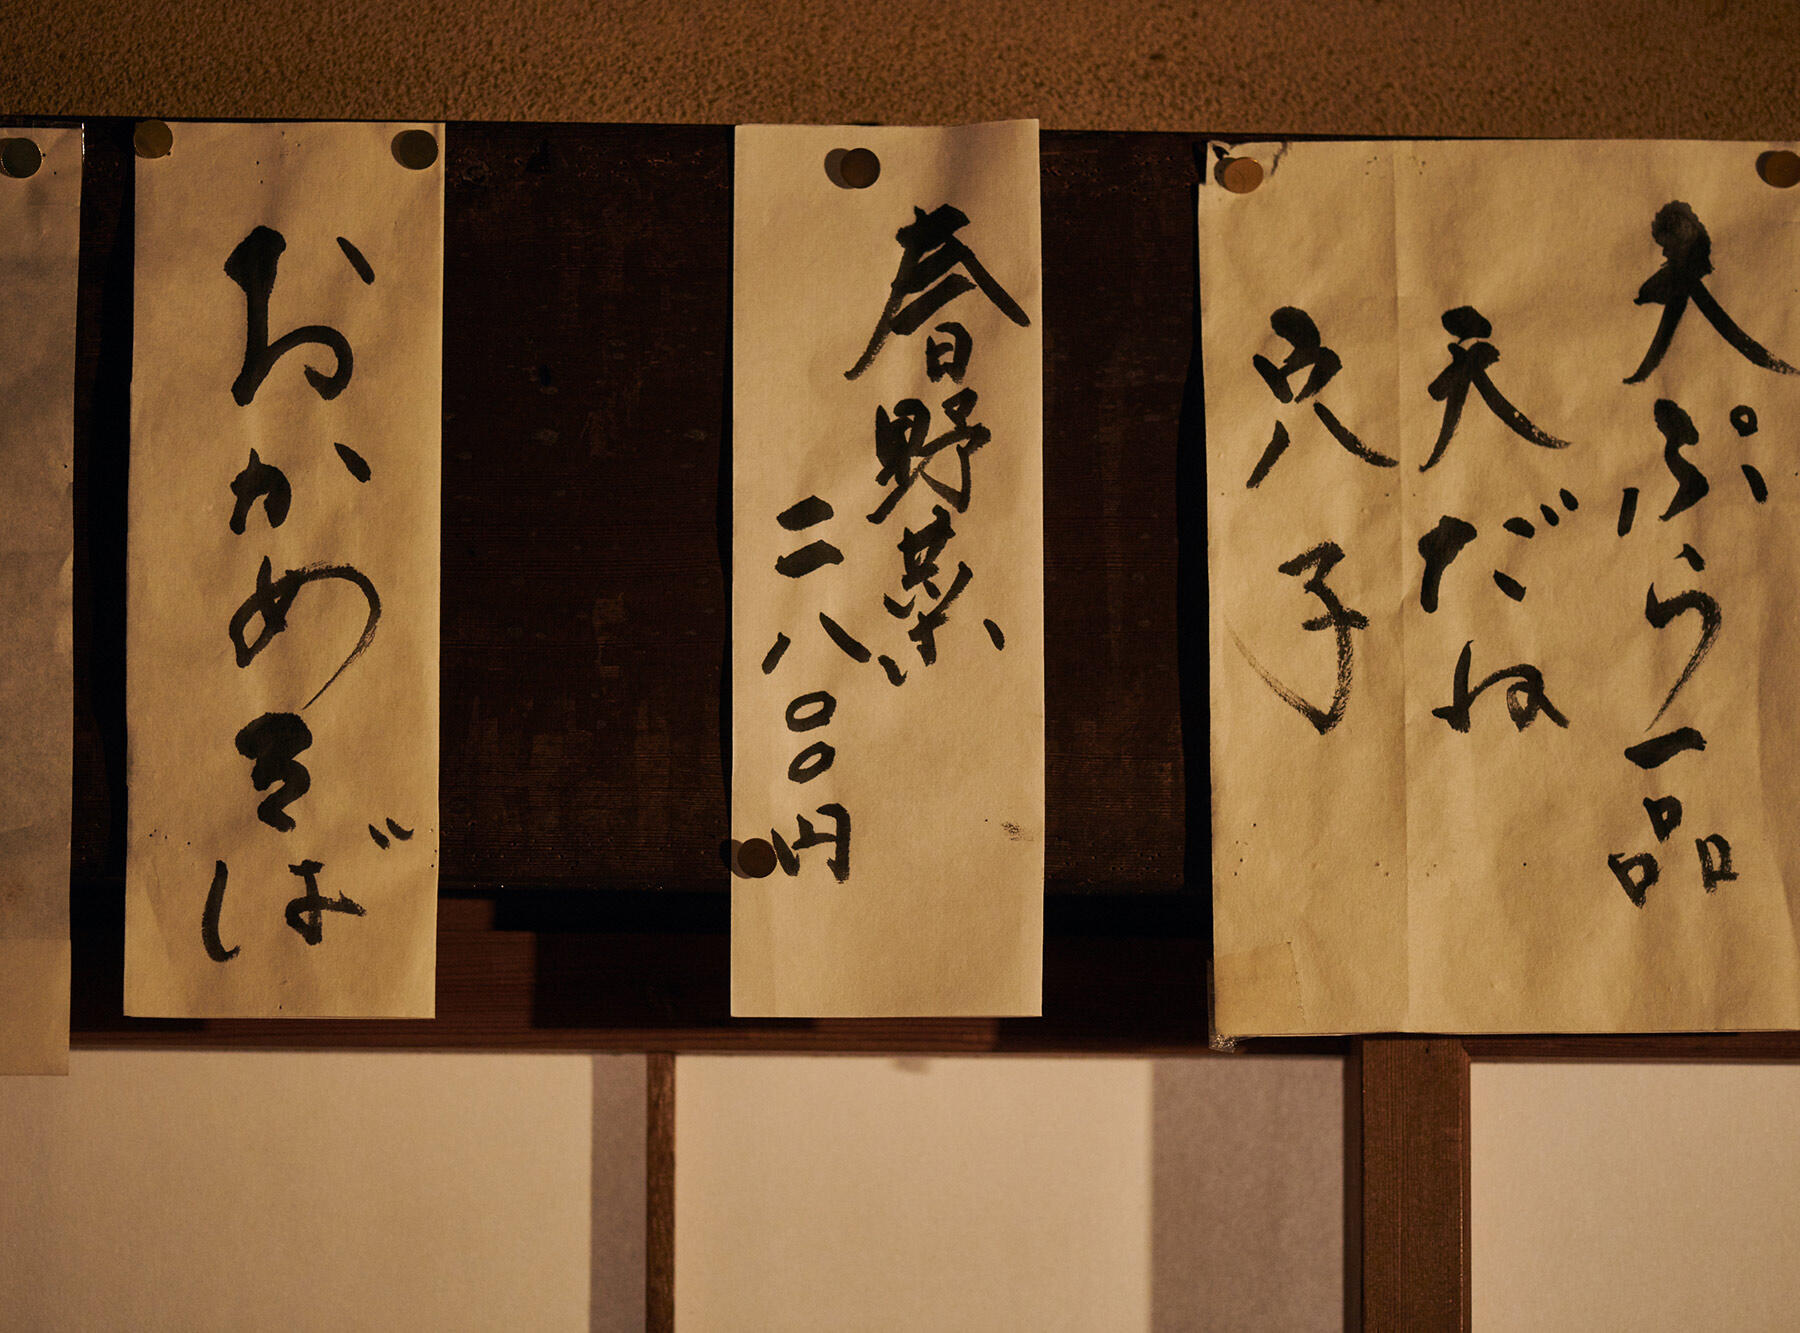 天ぷら一品
天だね
穴子
春野菜
二八〇〇円
おかめそば